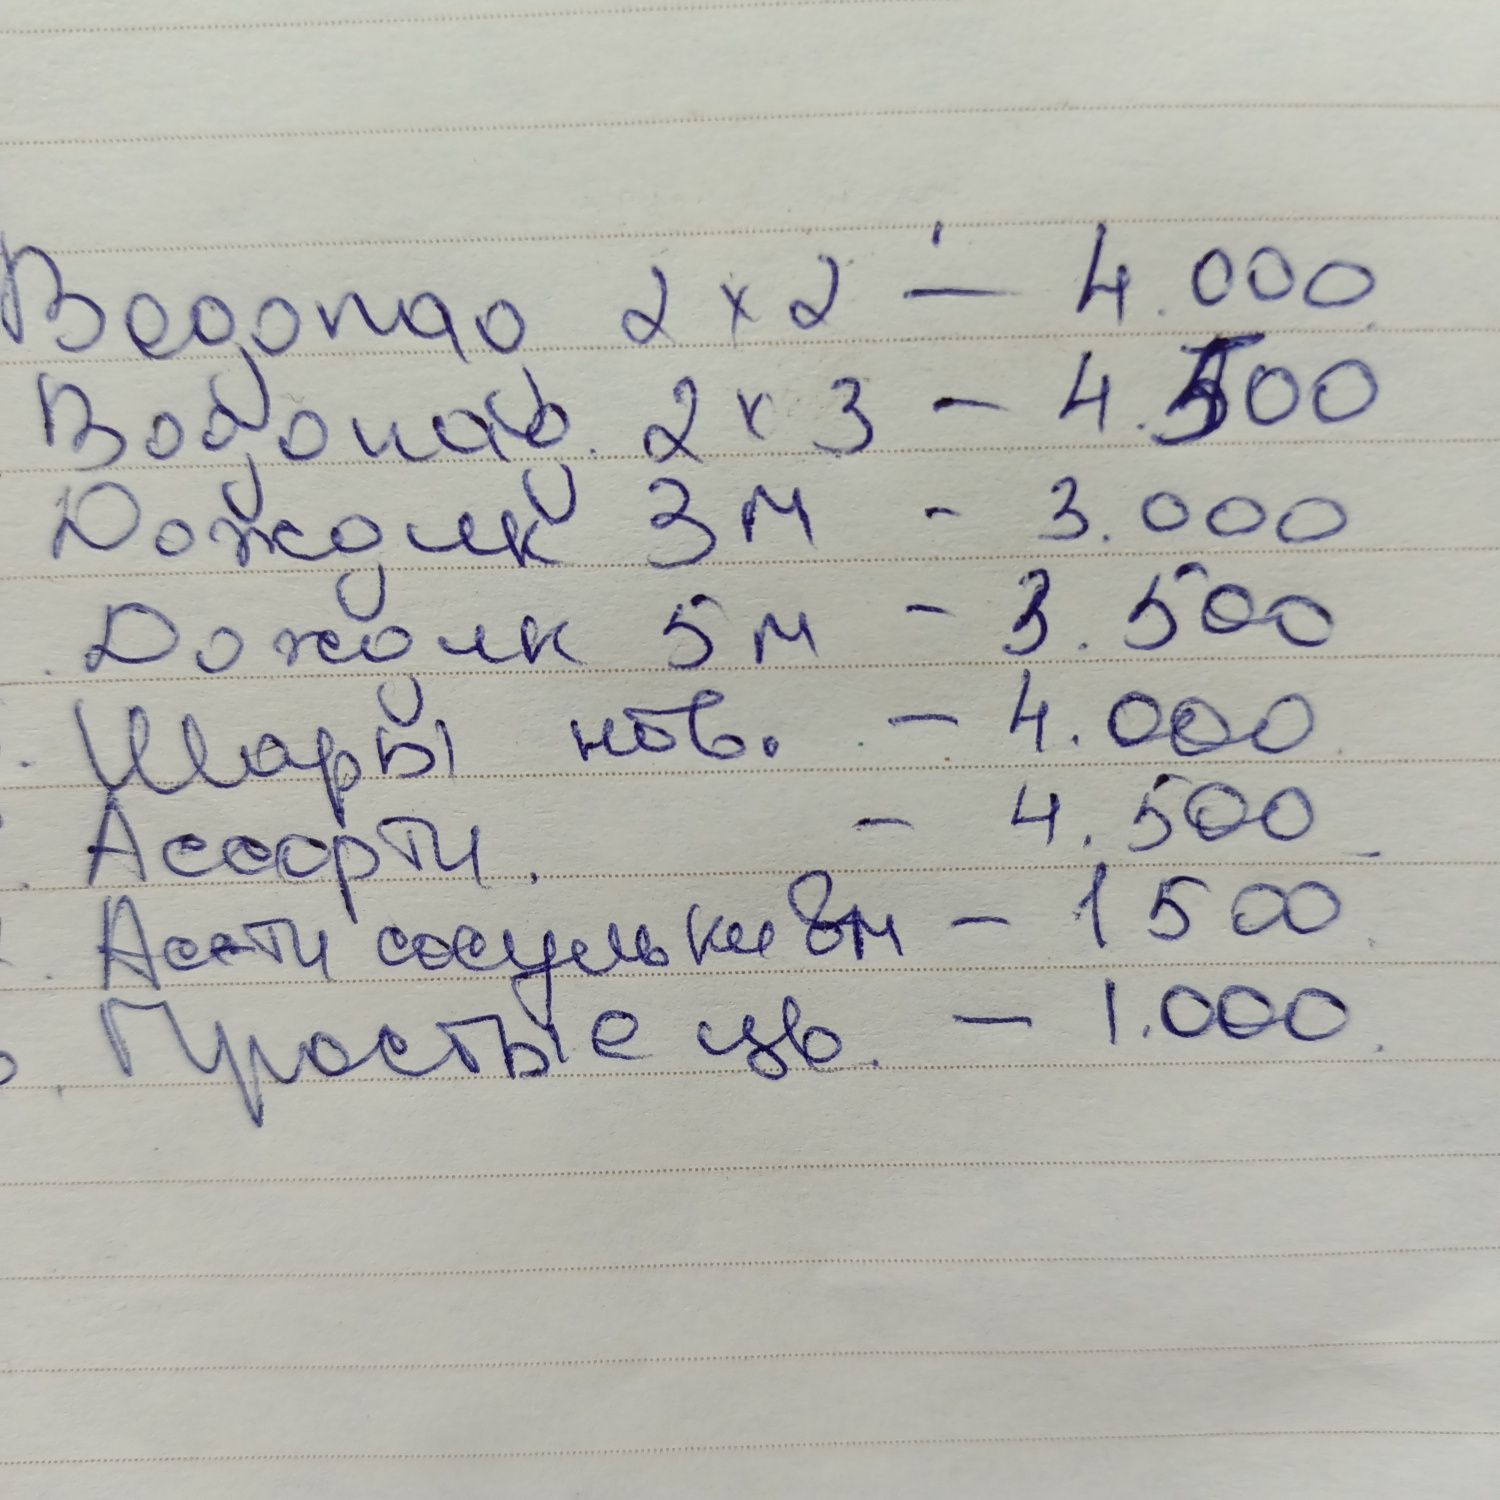 Водопад 2 x 2 - 4.000.
Водопад. 2 x 3 - 4.500
Дождик 3 м - 3.000
. Дождик 5 м - 3.500
. Шары нов. - 4.000.
. Ассорти. - 4.500
. сосульки 8м - 1500.
. Простые цв. - 1.000.